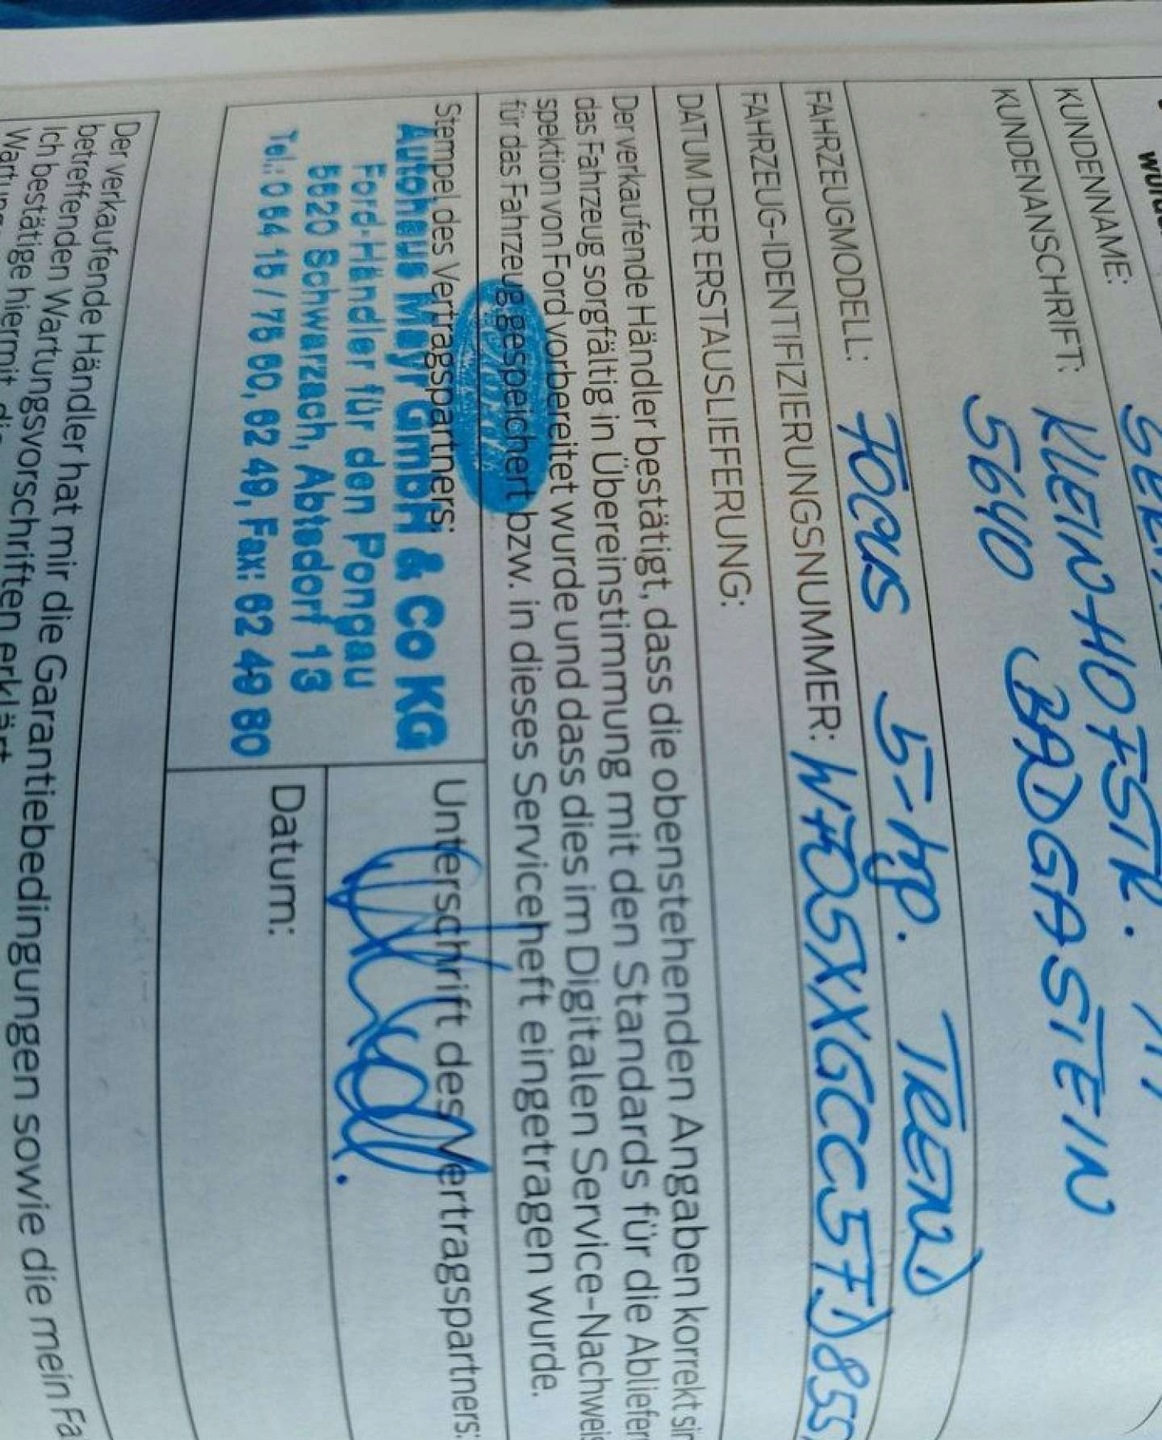 wurde
KUNDENNAME:
KUNDENANSCHRIFT: KLEINHOFSTR.
5640 BADGASTEIN
FAHRZEUGMODELL: FOCUS 5-tyg. TREND
FAHRZEUG-IDENTIFIZIERUNGSNUMMER: WF05XXGCC5FD855
DATUM DER ERSTAUSLIEFERUNG:
Der verkaufende Händler bestätigt, dass die obenstehenden Angaben korrekt sin
das Fahrzeug sorgfältig in Übereinstimmung mit den Standards für die Abliefer
spektion von Ford vorbereitet wurde und dass dies im Digitalen Service-Nachweis
für das Fahrzeug gespeichert bzw. in dieses Serviceheft eingetragen wurde.
Stempel des Vertragspartners: Unterschrift des Vertragspartners:
Autohaus Mayr GmbH & Co KG
Ford-Händler für den Pongau
5620 Schwarzach, Abtsdorf 13
Tel.: 0 64 15 / 75 60, 62 49, Fax: 62 49 80
Datum:
Der verkaufende Händler hat mir die Garantiebedingungen sowie die mein Fa
betreffenden Wartungsvorschriften erklärt.
Ich bestätige hiermit